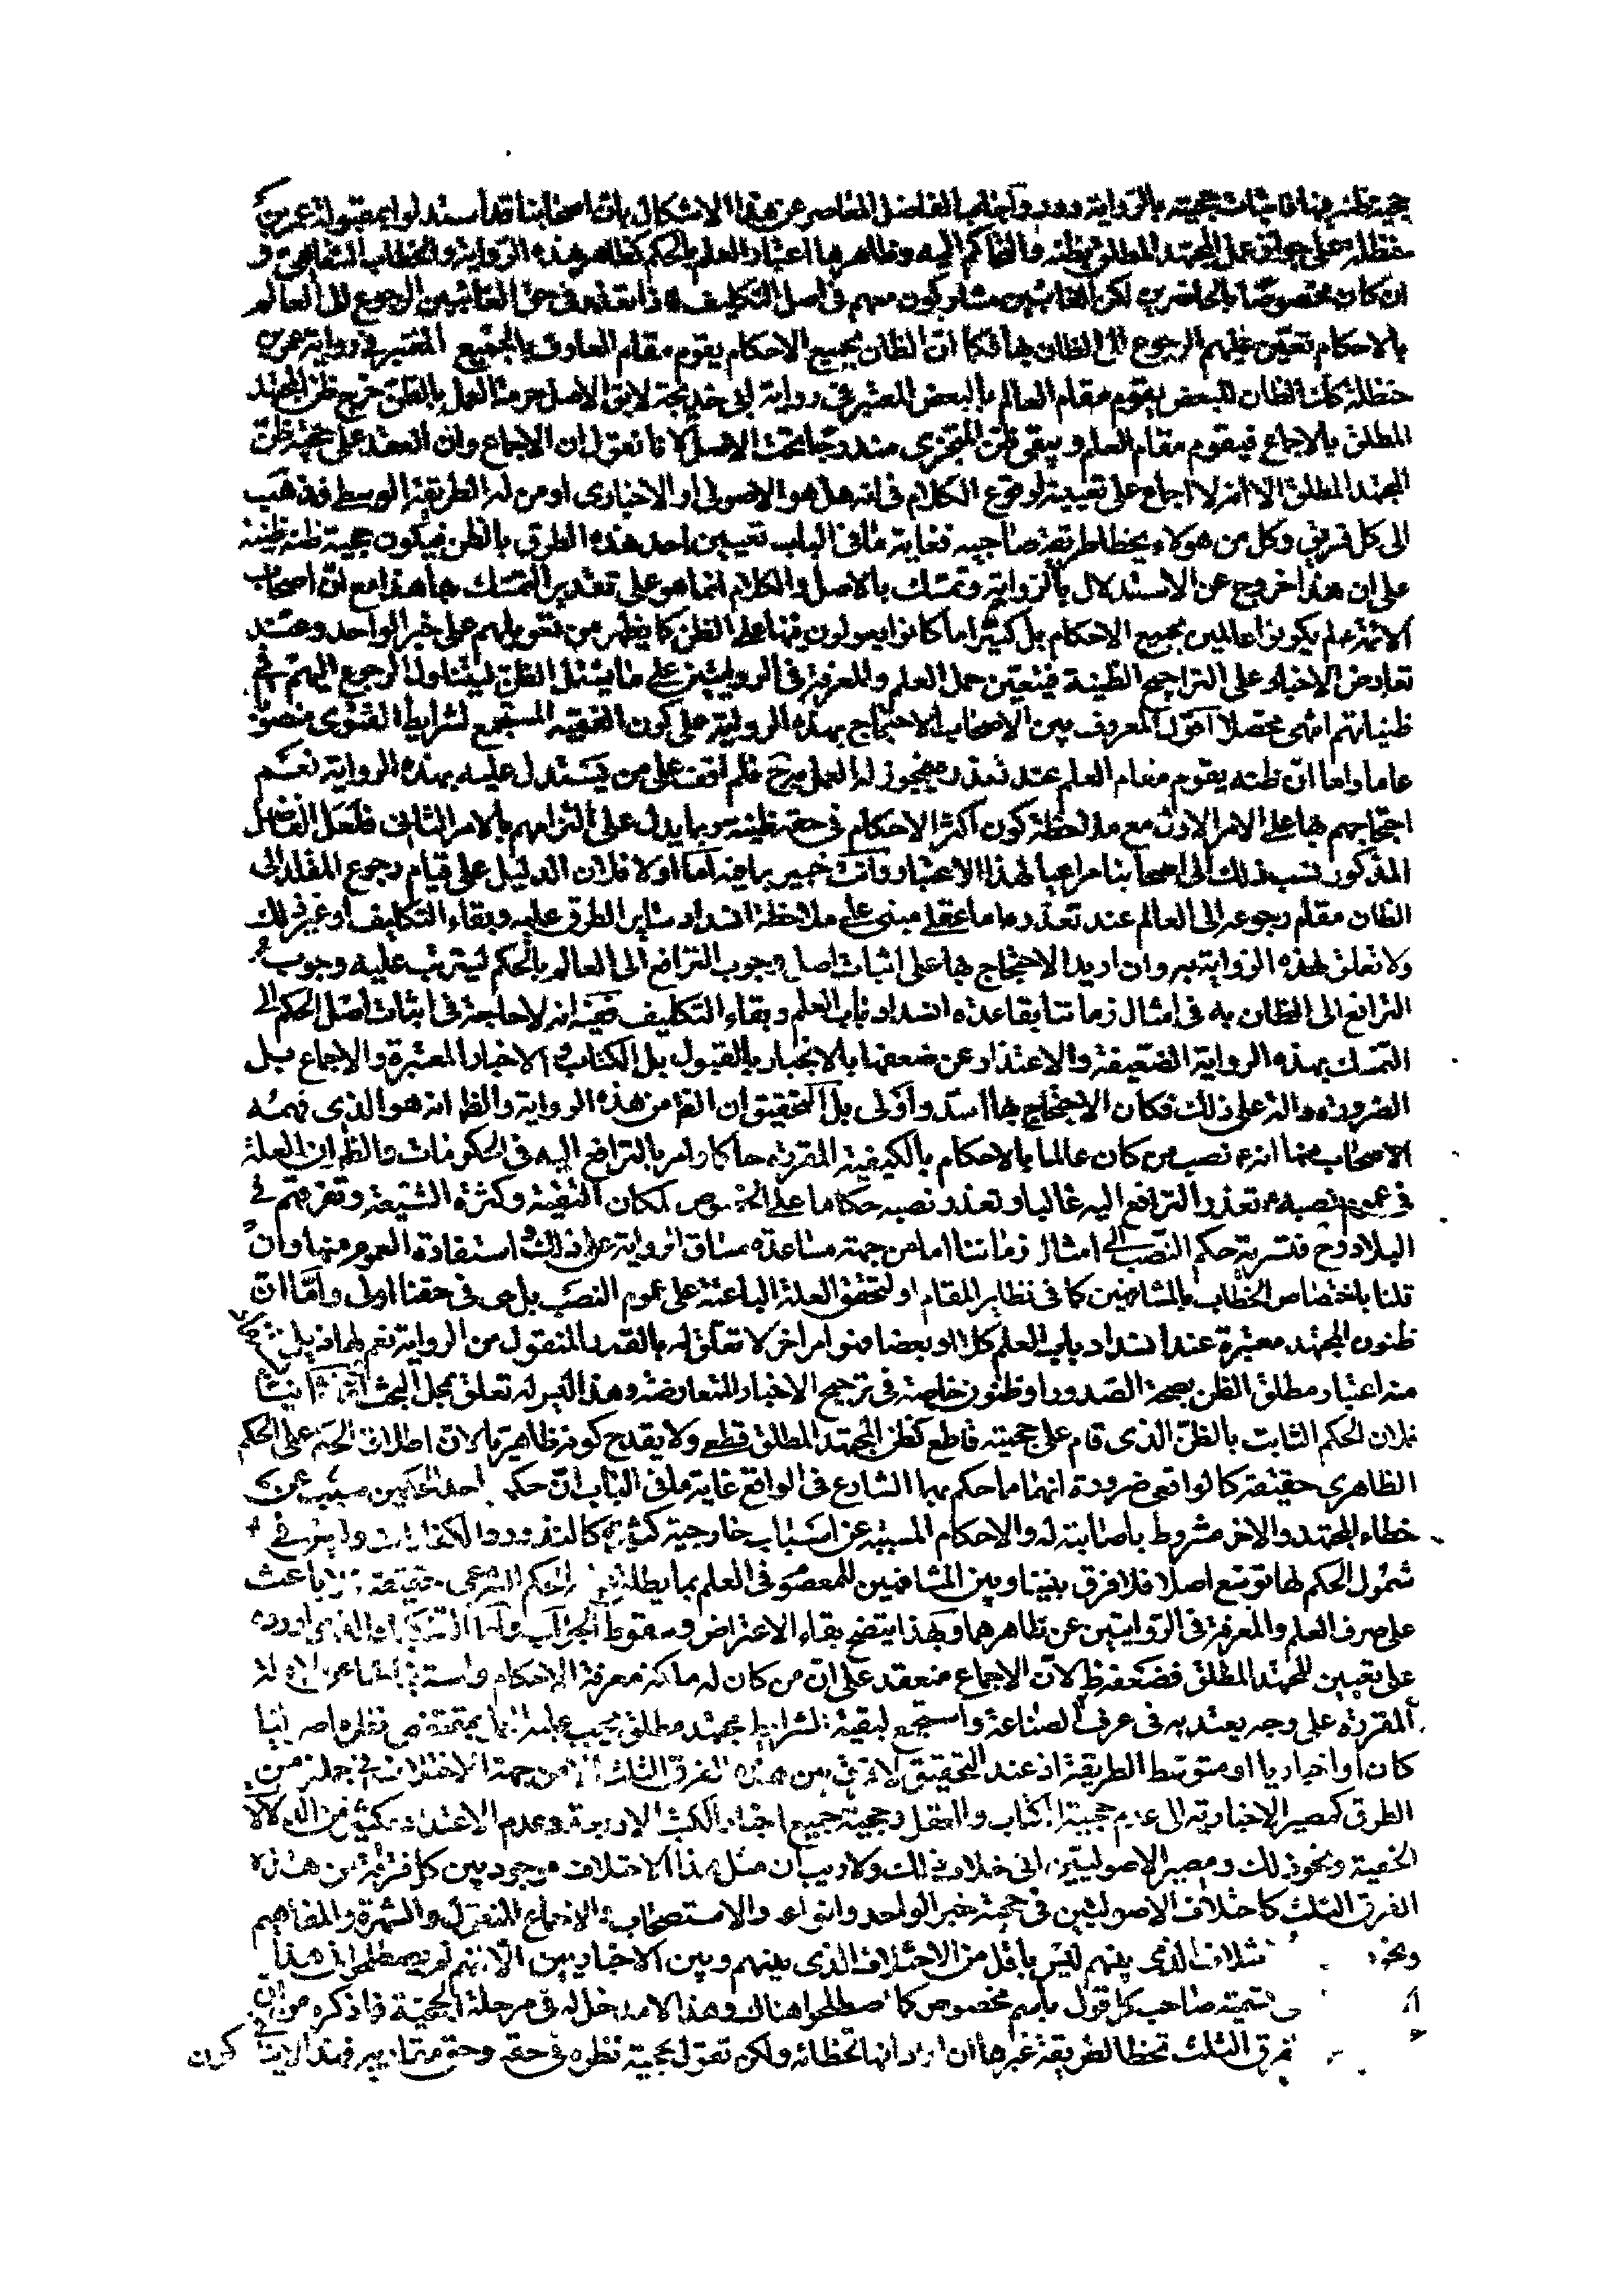 حجية ظنه بها فاثبات حجيته بالرواية دور وأجاب الفاضل المعاصر عن هذا الاشكال بان اصحابنا قد استدلوا بمقبولة عمر بن
حنظلة على جواز عمل المجتهد المطلق بظنه والتحاكم اليه وظاهرها اعتبار العلم بالحكم كظاهر هذه الرواية والخطاب الشفاهي و
ان كان مختصوصًا بالحاضرين لكن الغائبين مشاركون معهم فى اصل التكليف فاذا تعذر فى حق الغائبين الرجوع الى العالم
بالاحكام تعين عليهم الرجوع الى الظان بها فكما ان الظان بجميع الاحكام يقوم مقام العارف بالجميع المعتبر فى رواية عمر بن
حنظلة كك الظان للبعض يقوم مقام العالم بالبعض المعتبر فى رواية ابى خديجة لايق الاصل حرمة العمل بالظن خرج ظن المجتهد
المطلق بالاجماع فيقوم مقام العلم ويبقى ظن المتجزى مندرجا تحت الاصل لانا نقول ان الاجماع وان انعقد على حجية ظن
المجتهد المطلق الا انه لا اجماع على تعيينه لوقوع الكلام فى انه هل هو الاصولى او الاخبارى او من له الطريقة الوسطى فذهب
الى كل فريق وكل من هولاء يخطا طريقة صاحبه فغاية ما فى الباب تعيين احد هذه الطرق بالظن فيكون حجية ظنه ظنية
على ان هذا خروج عن الاستدلال بالرواية وتمسك بالاصل والكلام انما هو على تقدير التمسك بها هذا مع ان اصحاب
الائمة ع لم يكونوا عالمين بجميع الاحكام بل كثيرا ما كانوا يعولون فيها على الظن كما يظهر من تعويلهم على خبر الواحد وعند
تعارض الاخبار على التراجيح الظنية فيتعين حمل العلم والمعرفة فى الروايتين على ما يشتمل الظن ليتناول الرجوع اليهم فى
ظنياتهم انتهى محصلا اقول المعروف بين الاصحاب الاحتجاج بهذه الرواية على كون الفقيه المستجمع لشرايط الفتوى منصوبا
عاما واما ان ظنه يقوم مقام العلم عند تعذره فيجوز له العمل به ح فلم اقف على من يستدل عليه بهذه الرواية نعم
احتجاجهم بها على الامر الاول مع ملاحظة كون اكثر الاحكام فى حقه ظنية ربما يدل على التزامهم بالامر الثانى فلعل الفاضل
المذكور نسب ذلك الى اصحابنا مراعيا لهذا الاعتبار وانت خبير بما فيه اما اولا فلان الدليل على قيام رجوع المقلد الى
الظان مقام رجوعه الى العالم عند تعذره اما عقلى مبنى على ملاحظة انسداد ساير الطرق عليه وبقاء التكليف او غير ذلك
ولا تعلق لهذه الرواية به وان اريد الاحتجاج بها على اثبات اصل وجوب الترافع الى العالم بالحكم ليترتب عليه وجوب
الترافع الى الظان به فى امثال زماننا بقاعدة انسداد باب العلم وبقاء التكليف ففيه انه لا حاجة فى اثبات اصل الحكم الى
التمسك بهذه الرواية الضعيفة والاعتذار عن ضعفها بالانجبار بالقبول بل الكتاب و الاخبار المعتبرة والاجماع بل
الضرورة دالة على ذلك فكان الاحتجاج بها اسد و اولى بل التحقيق ان الظ من هذه الرواية والظ انه هو الذى فهمه
الاصحاب منها انه ع نصب من كان عالما بالاحكام بالكيفية المقررة حاكما وامر بالترافع اليه فى الحكومات والظ ان العلة
فى عموم نصبه ع تعذر الترافع اليه غالبا وتعذر نصبه حكاما على الخصوص لمكان التقية وكثرة الشيعة وتفرقهم فى
البلاد وح فتسرية حكم النصب الى امثال زماننا اما من جهة مساعدة مساق الرواية على ذلك و استفادة العموم منها وان
قلنا باختصاص الخطاب بالمشافهين كما فى نظاير المقام او لتحقق العلة الباعثة على عموم النصب بل هى فى حقنا اولى واما ان
ظنون المجتهد معتبرة عند انسداد باب العلم كلا او بعضا فهو امر اخر لا تعلق له بالقدر المنقول من الرواية نعم لها ذيل
منه اعتبار مطلق الظن بصحة الصدور او ظنون خاصة فى ترجيح الاخبار المتعارضة وهذا ليس له تعلق بمحل البحث
فلان الحكم الثابت بالظن الذى قام على حجيته قاطع كظن المجتهد المطلق قطعى ولا يقدح كونه ظاهريا لان اطلاق الحكم على الحكم
الظاهرى حقيقة كالواقعى ضرورة انهما ما حكم بهما الشارع فى الواقع غاية ما فى الباب ان حكمه احد الحكمين مسبب عن
خطاء المجتهد والاخر مشروط باصابته له والاحكام المسببة عن اسباب خارجية كثيرة كالنذور والكفارات وليس فى
شمول الحكم لها توسع اصلا فلا فرق بيننا وبين المشافهين للمعصوم فى العلم بما يطلق الحكم الشرعى حقيقة فلا باعث
على صرف العلم والمعرفة فى الروايتين عن ظاهرهما وبهذا يتضح بقاء الاعتراض وسقوط الجواب واما الذى اورده
على تعيين المجتهد المطلق فضعفه ظ لان الاجماع منعقد على ان من كان له ملكة معرفة الاحكام
المقررة على وجه يعتد به فى عرف الصناعة واستجمع لبقية الشرايط مجتهد مطلق يجب عليه العمل بمقتضى نظره اصوليا
كان او اخباريا او متوسط الطريقة اذ عند التحقيق لا فرق بين هذه الفرق الثلث الا من جهة الاختلاف فى جملة من
الطرق كمصير الاخبارية الى عدم حجية الكتاب والعقل وحجية جميع اخبار الكتب الاربعة وعدم الاعتداد بكثير من الدلالات
الخفية ونحو ذلك ومصير الاصوليين الى خلاف ذلك ولا ريب ان مثل هذا الاختلاف موجود بين كل فرقة من هذه
الفرق الثلث كاختلاف الاصوليين فى حجية خبر الواحد وانواعه والاستصحاب والاجماع المنقول والشهرة والمفاهيم
ونحوه الذى بينهم ليس باقل من الاختلاف الذى بينهم وبين الاخباريين الا انهم لم يصطلحوا فى هذا
تسمية صاحب كل قول باسم مخصوص كما اصطلحوا هناك وهذا لا مدخل له فى مرحلة الحجية فما ذكره من ان
فرق الثلث تخطا لطريقة غيرها ان اراد انها تخطائه ولكن تقول بحجية نظره فى حقه وحق مقلديه فهذا لاينا